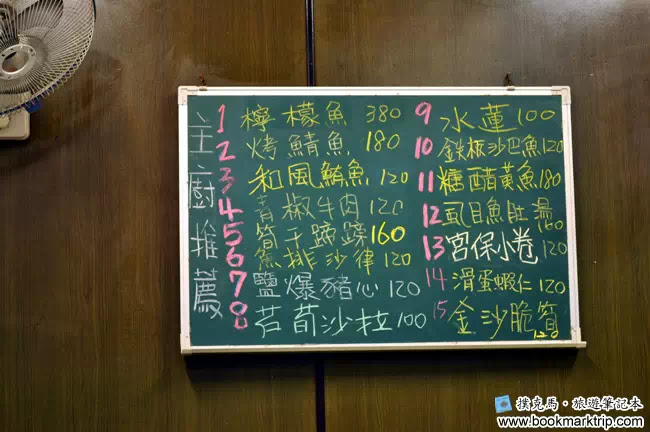 主廚推薦
1 檸檬魚 380
2 烤鯖魚 180
3 和風鮪魚 120
4 青椒牛肉 120
5 筍干蹄膀 160
6 魚排沙律 120
7 鹽爆豬心 120
8 茖荀沙拉 100
9 水蓮 100
10 鉄板沙巴魚 120
11 糖醋黃魚 180
12 虱目魚肚湯 160
13 宮保小卷 120
14 滑蛋蝦仁 120
15 金沙脆筍 120
撲克馬・旅遊筆記本
www.bookmarktrip.com